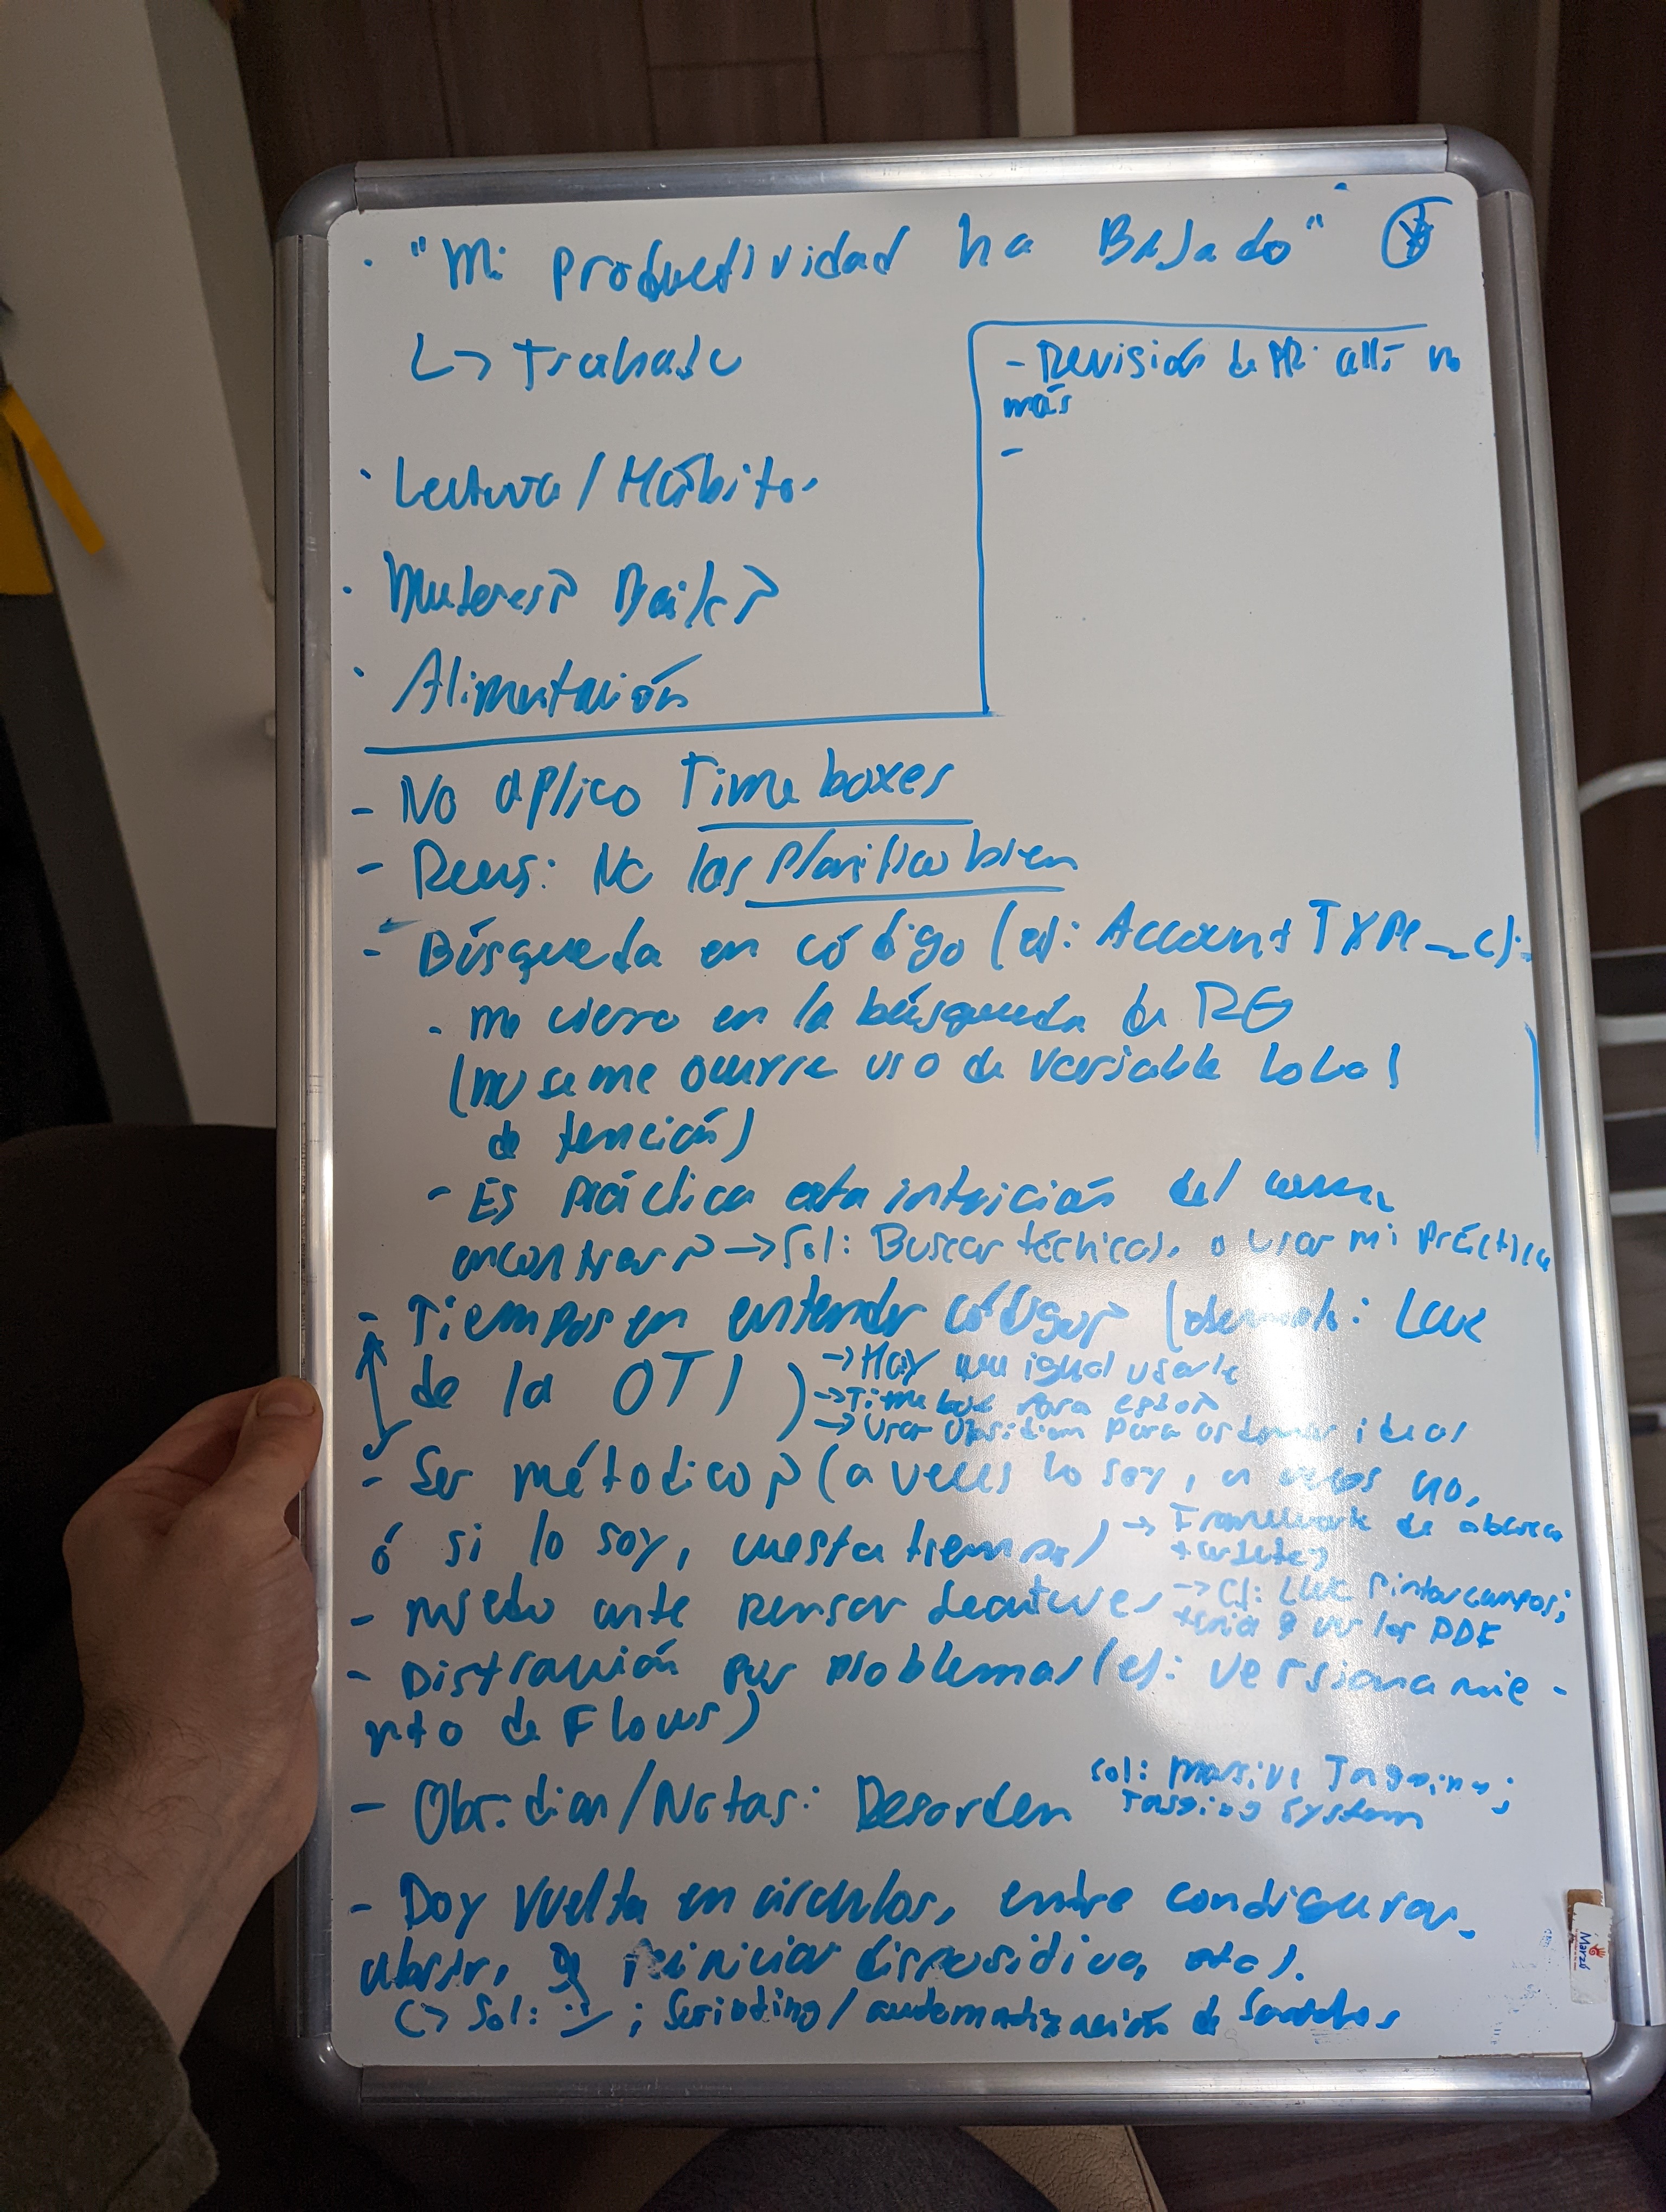 · "Mi productividad ha Bajado"
↳ Trabajo
- Revisión de PR: allí no
más
-
· Lectura / Hábitos
· Mujeres? Baile?
· Alimentación
- No aplico Time boxes
- Reus: No las planifico bien
- Búsqueda en código (ej: Account TYPe__c):
· me cierro en la búsqueda de
(no se me ocurre uso de variable local
de)
- Es práctica esta intuición del
encontrar? → Sol: Buscar técnicas, o usar mi práctica
- Tiempos en entender código? (: LWC
de la OT)
→ Hay que igual usarlo
→ Time box para esto
→ Usar Obsidian para ordenar ideas
- Ser métodico? (a veces lo soy, a veces no,
ó si lo soy, cuesta tiempo) → Framework de
- miedo ante pensar features → Ej: LWC Pintar campos;
y ver los PDF
- Distracción por problemas (ej: versionamie-
nto de Flows)
- Obsidian/Notas: Desorden sol: Massive Tagging;
Tagging system
- Doy vuelta en círculos, entre configurar,
abrir, reiniciar dispositivo, etc).
↳ Sol: :) ; Scripting / automatización de
Marzo